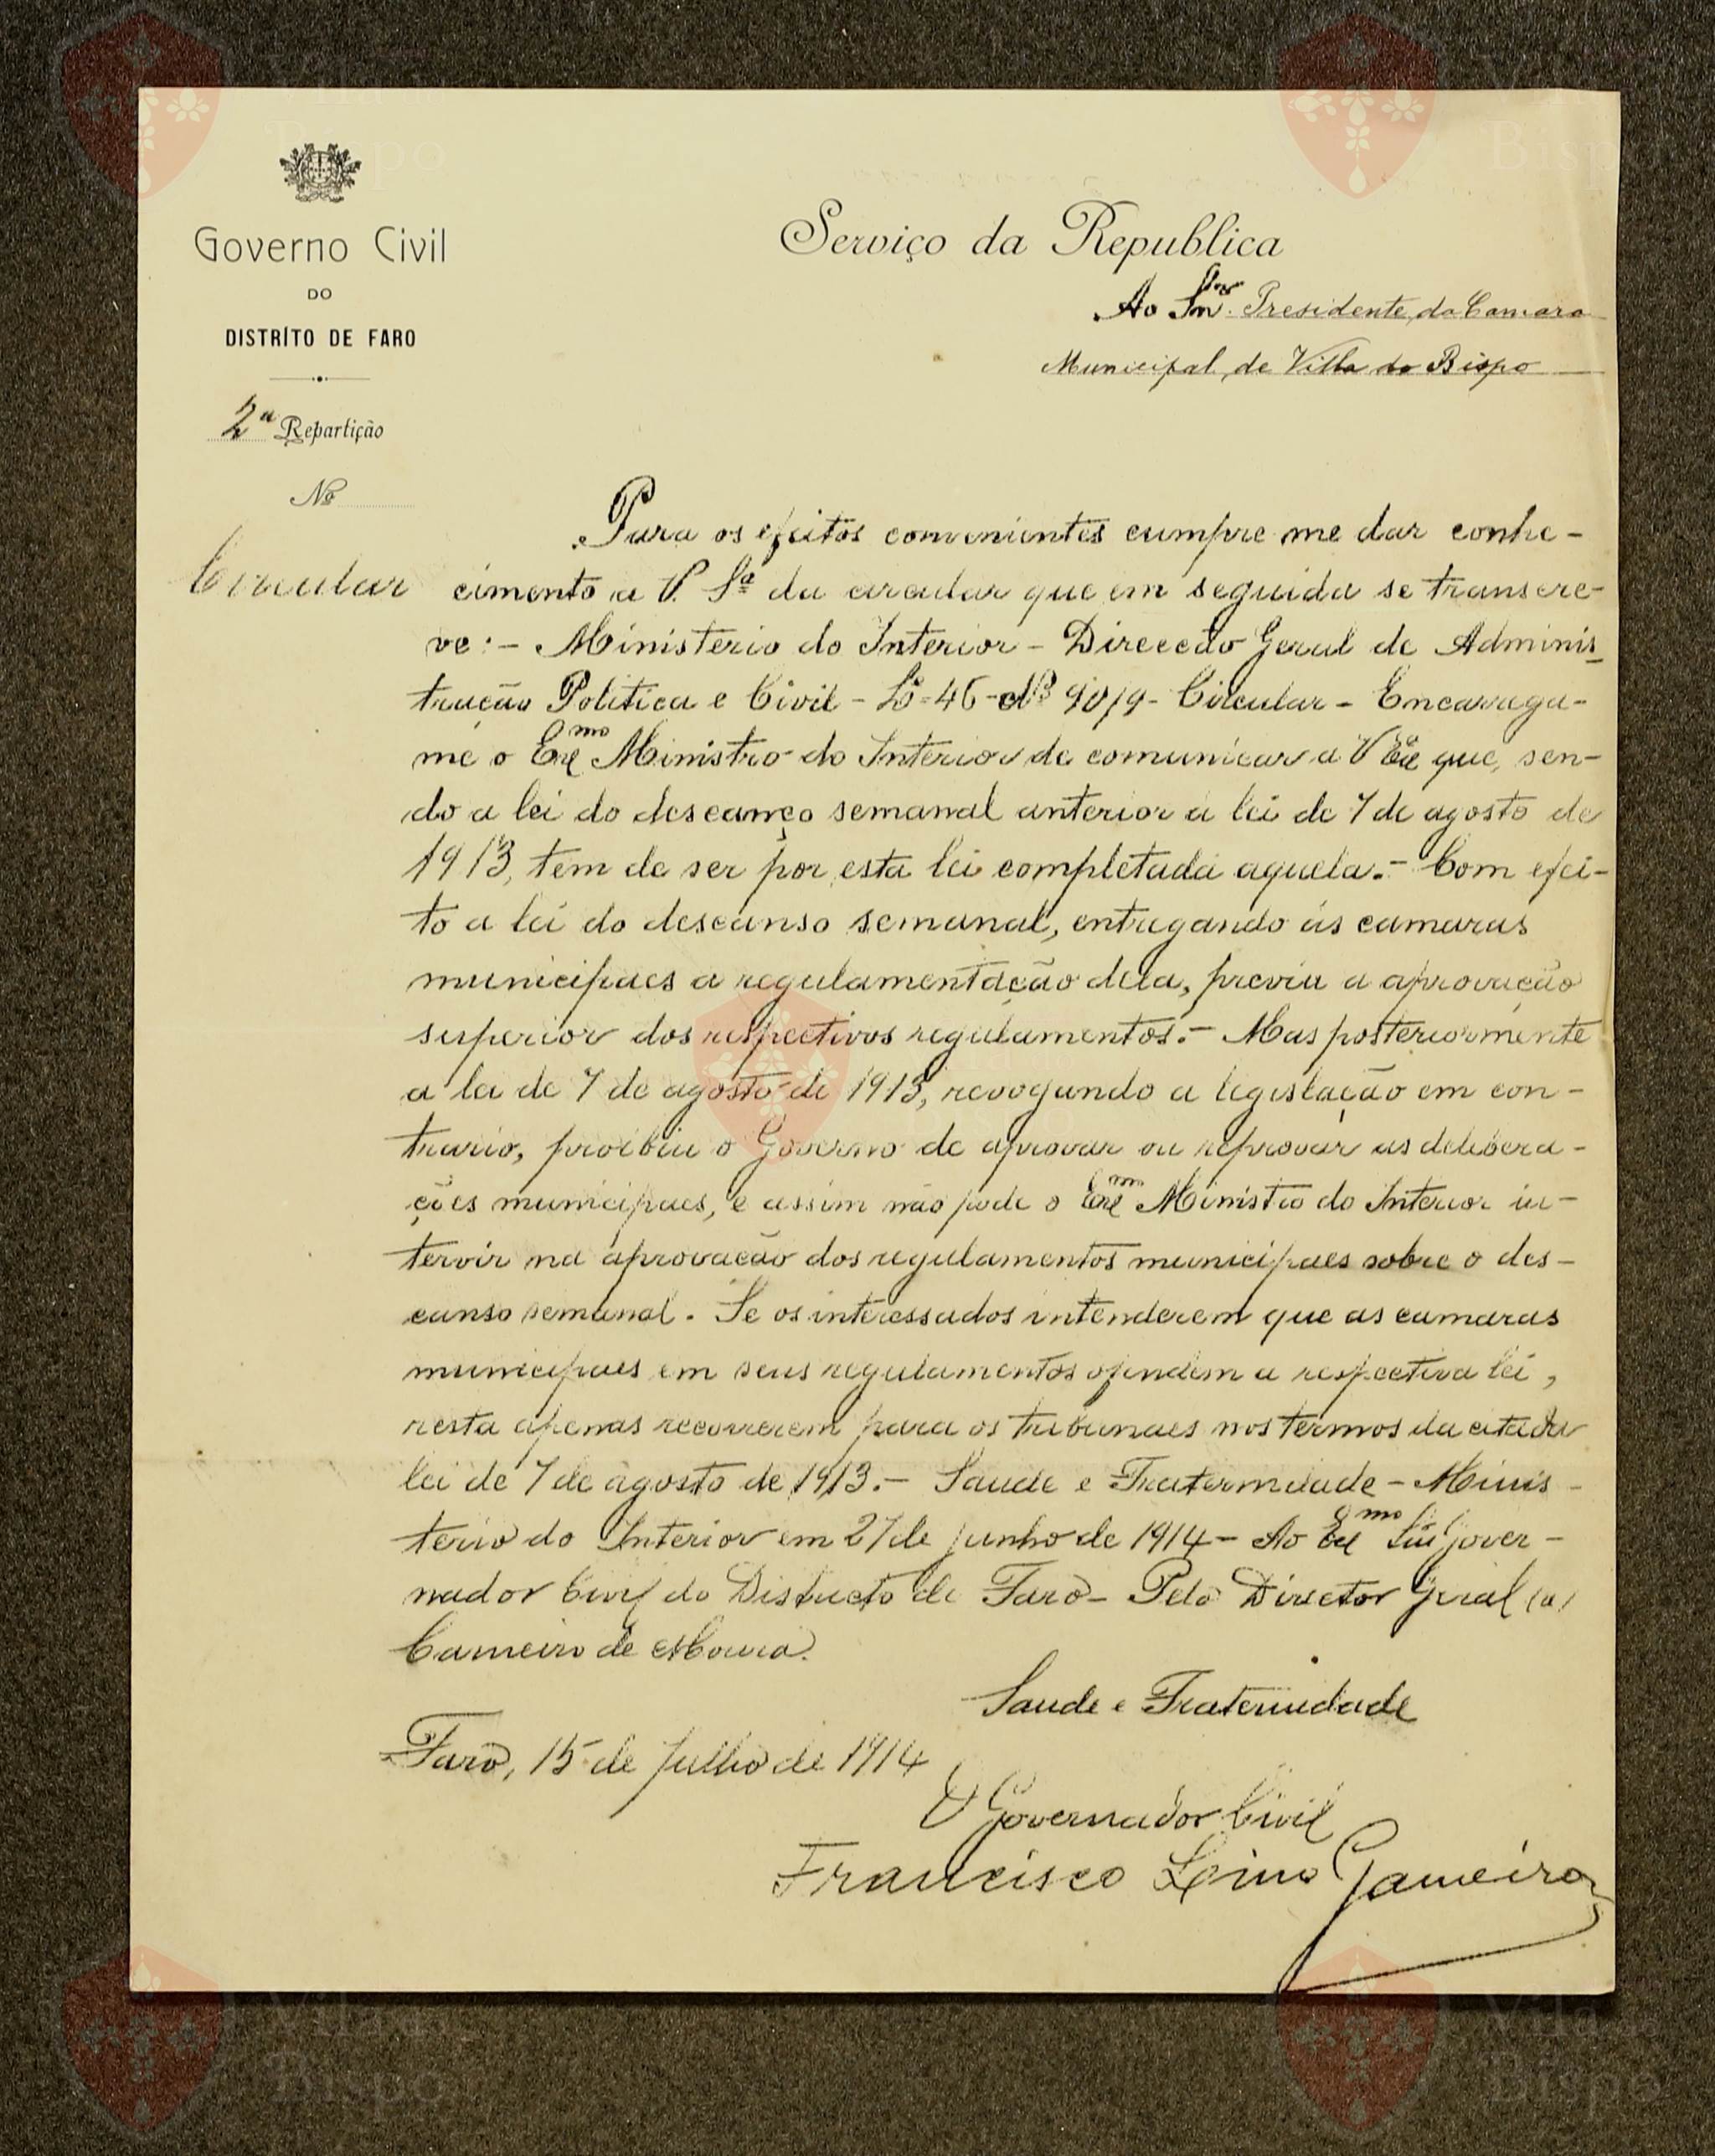 Governo Civil
DO
DISTRÍTO DE FARO
2ª Repartição
Nº
Circular
Serviço da Republica
Ao Snr. Presidente da Camara
Municipal de Villa do Bispo
Para os efeitos convenientes cumpre me dar conhe-
cimento a V. Sª da circular que em seguida se transcre-
ve:- Ministerio do Interior - Direcção Geral de Adminis-
tração Politica e Civil - Lº-46-Nº 9019- Circular - Encarrega-
me o Exmo Ministro do Interior de comunicar a V Exª que, sen-
do a lei do descanço semanal anterior á lei de 7 de agosto de
1913, tem de ser por esta lei completada aquela.- Com efei-
to a lei do descanso semanal, entregando ás camaras
municipaes a regulamentação dela, previu a aprovação
superior dos respectivos regulamentos.- Mas posteriormente
a lei de 7 de agosto de 1913, revogando a legislação em con-
trario, proibiu o Governo de aprovar ou reprovar as delibera-
ções municipaes, e assim não pode o Exmo Ministro do Interior in-
tervir na aprovação dos regulamentos municipaes sobre o des-
canso semanal. Se os interessados intenderem que as camaras
municipaes em seus regulamentos ofendem a respectiva lei,
resta apenas recorrerem para os tribunaes nos termos da citada
lei de 7 de agosto de 1913.- Saude e Fraternidade - Minis-
terio do Interior em 27 de Junho de 1914- Ao Exmo Snr Gover-
nador Civil do Districto de Faro- Pelo Director Geral (a)
Carneiro de Moura.
Saude e Fraternidade
Faro, 15 de Julho de 1914
O Governador Civil
Francisco Lino Gameiro